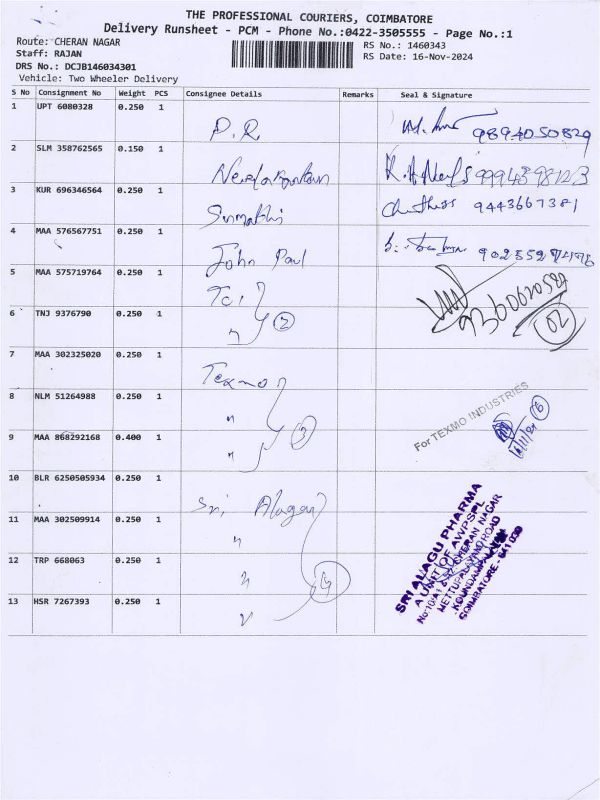 THE PROFESSIONAL COURIERS, COIMBATORE
Delivery Runsheet - PCM - Phone No.:0422-3505555 - Page No.:1
Route: CHERAN NAGAR
RS No.: 1460343
Staff: RAJAN
RS Date: 16-Nov-2024
DRS No.: DCJB146034301
Vehicle: Two Wheeler Delivery
S No Consignment No Weight PCS Consignee Details Remarks Seal & Signature
1 UPT 6080328 0.250 1 P.R. 9894050829
2 SLM 358762565 0.150 1
3 KUR 696346564 0.250 1 9443667381
4 MAA 576567751 0.250 1 John Paul
5 MAA 575719764 0.250 1
6 TNJ 9376790 0.250 1 " 2
7 MAA 302325020 0.250 1 Texmo
8 NLM 51264988 0.250 1 " For TEXMO INDUSTRIES
9 MAA 868292168 0.400 1 " 3
10 BLR 6250505934 0.250 1 Sri Alagu
11 MAA 302509914 0.250 1 "
12 TRP 668063 0.250 1 "
13 HSR 7267393 0.250 1
SRI ALAGU PHARMA
A UNIT OF AWPSPL
CHERAN NAGAR
METTUPALAYAM ROAD
COIMBATORE - 641 030